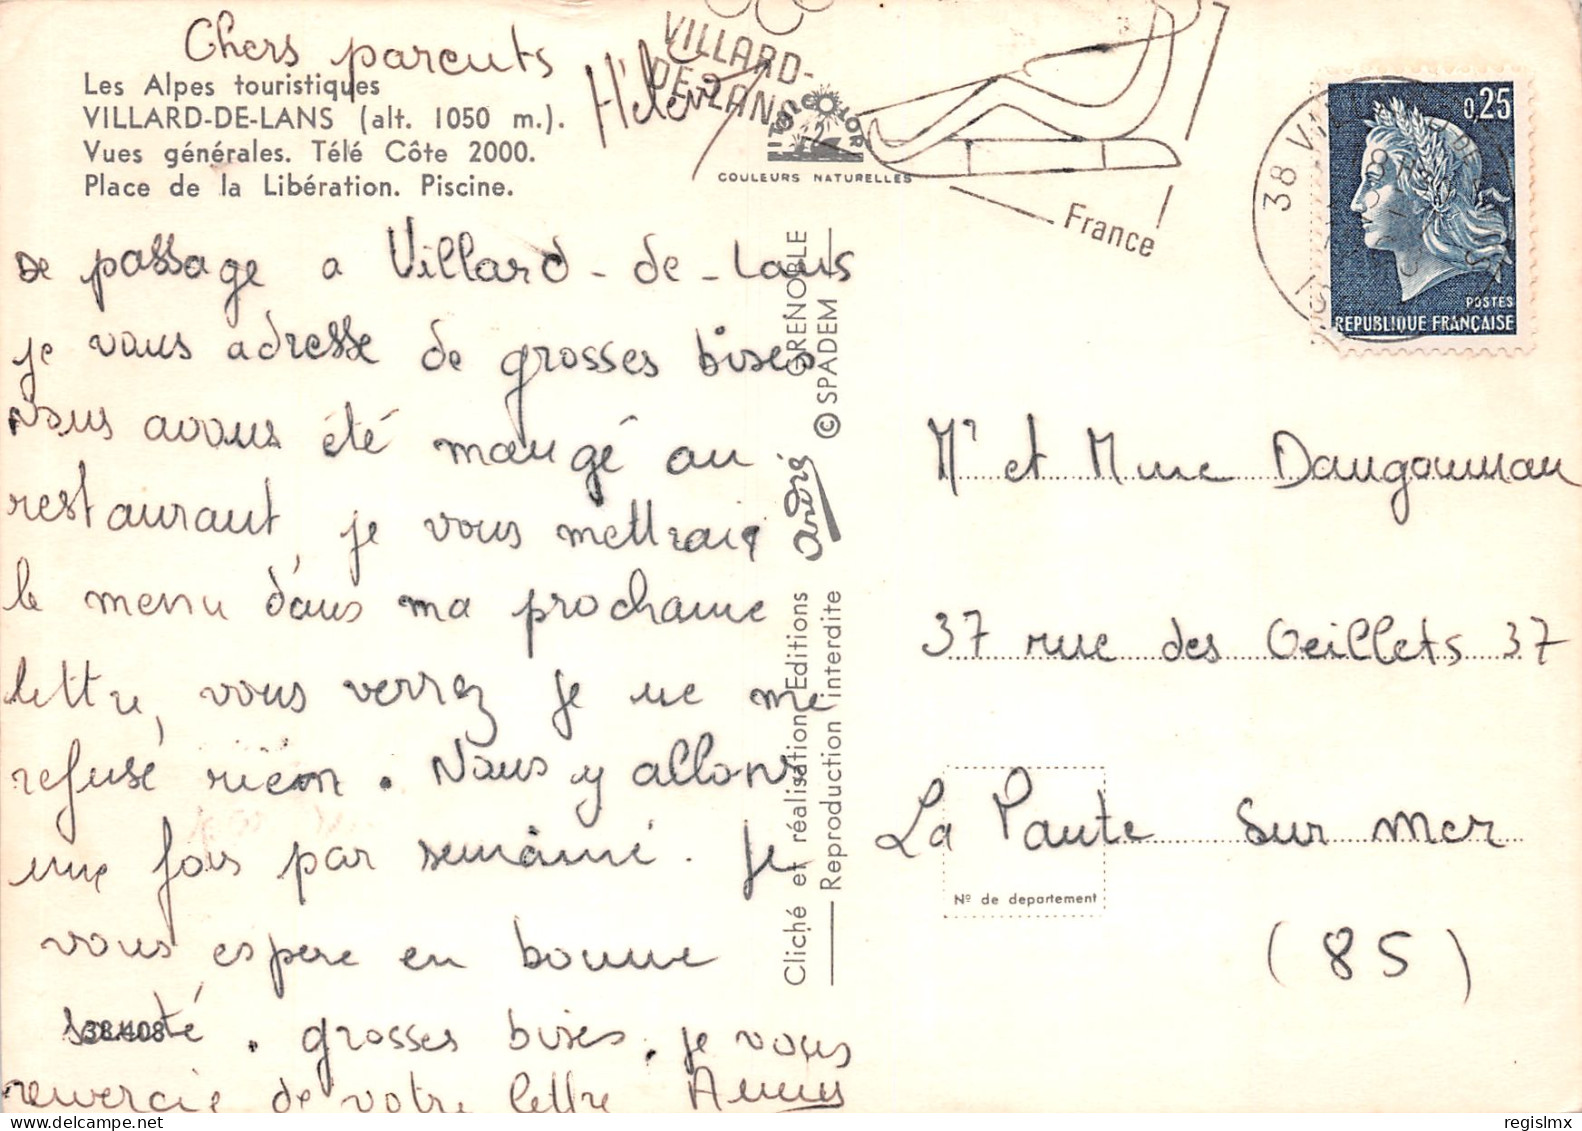 Chers parents
Les Alpes touristiques
VILLARD-DE-LANS (alt. 1050 m.).
Vues générales. Télé Côte 2000.
Place de la Libération. Piscine.
De passage a Villard-de-Lans
je vous adresse de grosses bises
Nous avons été mangé au
restaurant, je vous mettrais
le menu dans ma prochaine
lettre, vous verrez je ne me
refuse rien. Nous y allons
une fois par semaine. Je
vous espere en bonne
santé. grosses bises. je vous
remercie de votre lettre
38.408
Cliché et réalisation Editions
André
GRENOBLE
Reproduction interdite
© SPADEM
VILLARD-
DE-LANS
France
COULEURS NATURELLES
38 VILLARD DE
0,25
POSTES
REPUBLIQUE FRANÇAISE
Mr et Mme
37 rue des Oeillets 37
La Paute sur mer
Nº de departement
(85)
regislmx